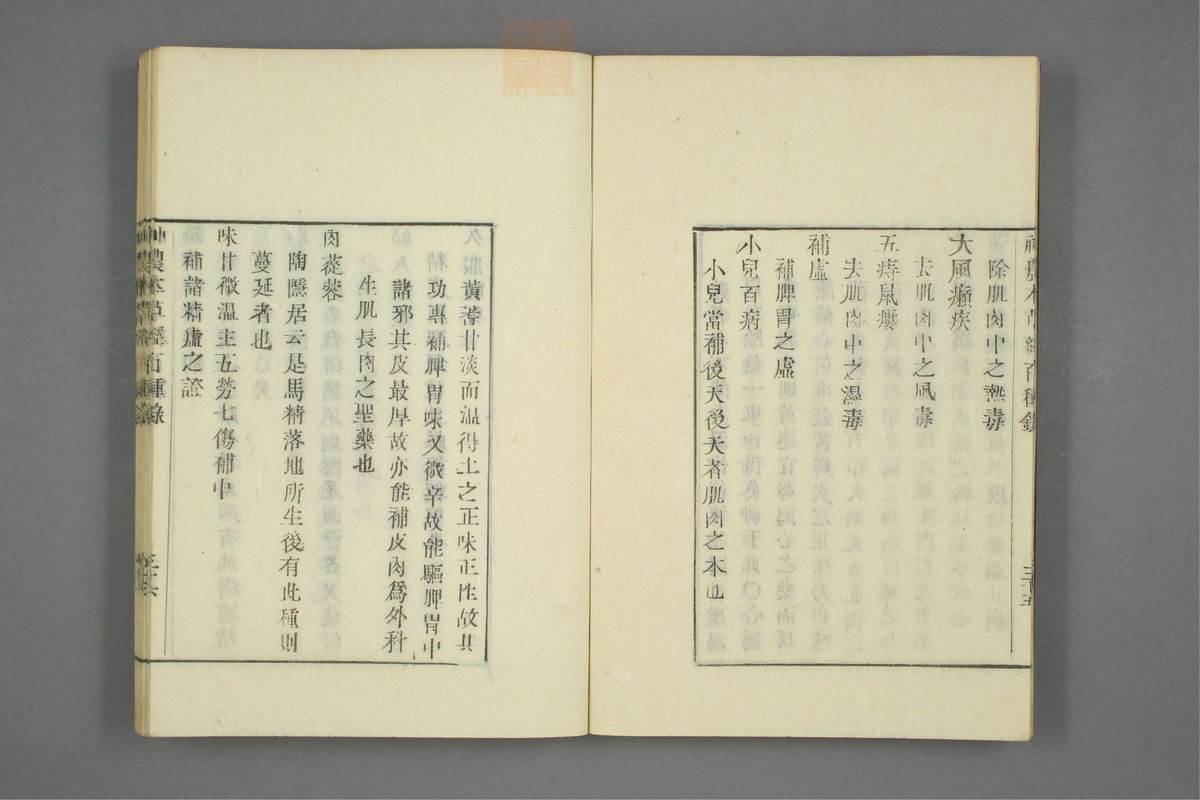 神農本草經百種錄
三十五
除肌肉中之熱毒
大風癩疾
去肌肉中之風毒
五痔鼠瘻
去肌肉中之濕毒
補虛
補脾胃之虛
小兒百病
小兒當補後天後天者肌肉之本也
黃蓍甘淡而溫得土之正味正性故其
功專補脾胃味又微辛故能驅脾胃中
諸邪其皮最厚故亦能補皮肉爲外科
生肌長肉之聖藥也
肉蓯蓉
陶隱居云是馬精落地所生後有此種則
蔓延者也
味甘微溫主五勞七傷補中
補諸精虛之證
神農本草經百種錄
三十六
zysj.com.cn